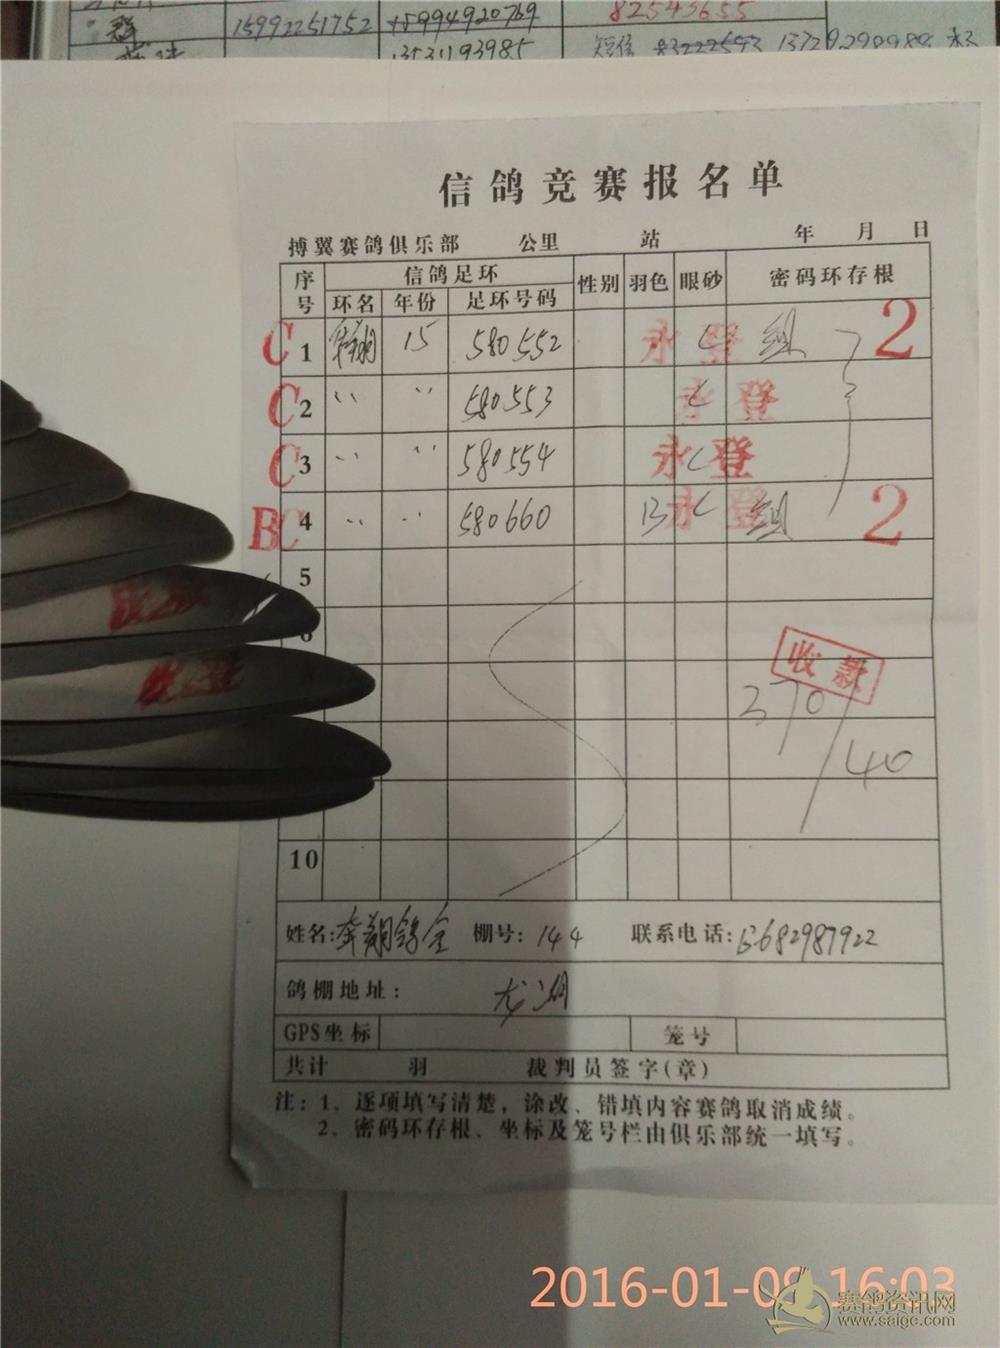 群 15992251752 15994920769 82543655
13531193985 短信 83222593 13729290989
信鸽竞赛报名单
搏翼赛鸽俱乐部 公里 站 年 月 日
序号 信鸽足环 性别 羽色 眼砂 密码环存根
环名 年份 足环号码
C 1 翔 15 580552 永登 C 组 2
C 2 〃 〃 580553 永登 C
C 3 〃 〃 580554 永登 C
BC 4 〃 〃 580660 B 永登 C 组 2
5
6
收款
370/40
10
姓名: 奔翔鸽舍 棚号: 144 联系电话: 13682987922
鸽棚地址: 龙湖
GPS坐标 笼号
共计 羽 裁判员签字(章)
注: 1、逐项填写清楚，涂改、错填内容赛鸽取消成绩。
2、密码环存根、坐标及笼号栏由俱乐部统一填写。
2016-01-09 16:03
赛鸽资讯网
www.saige.com